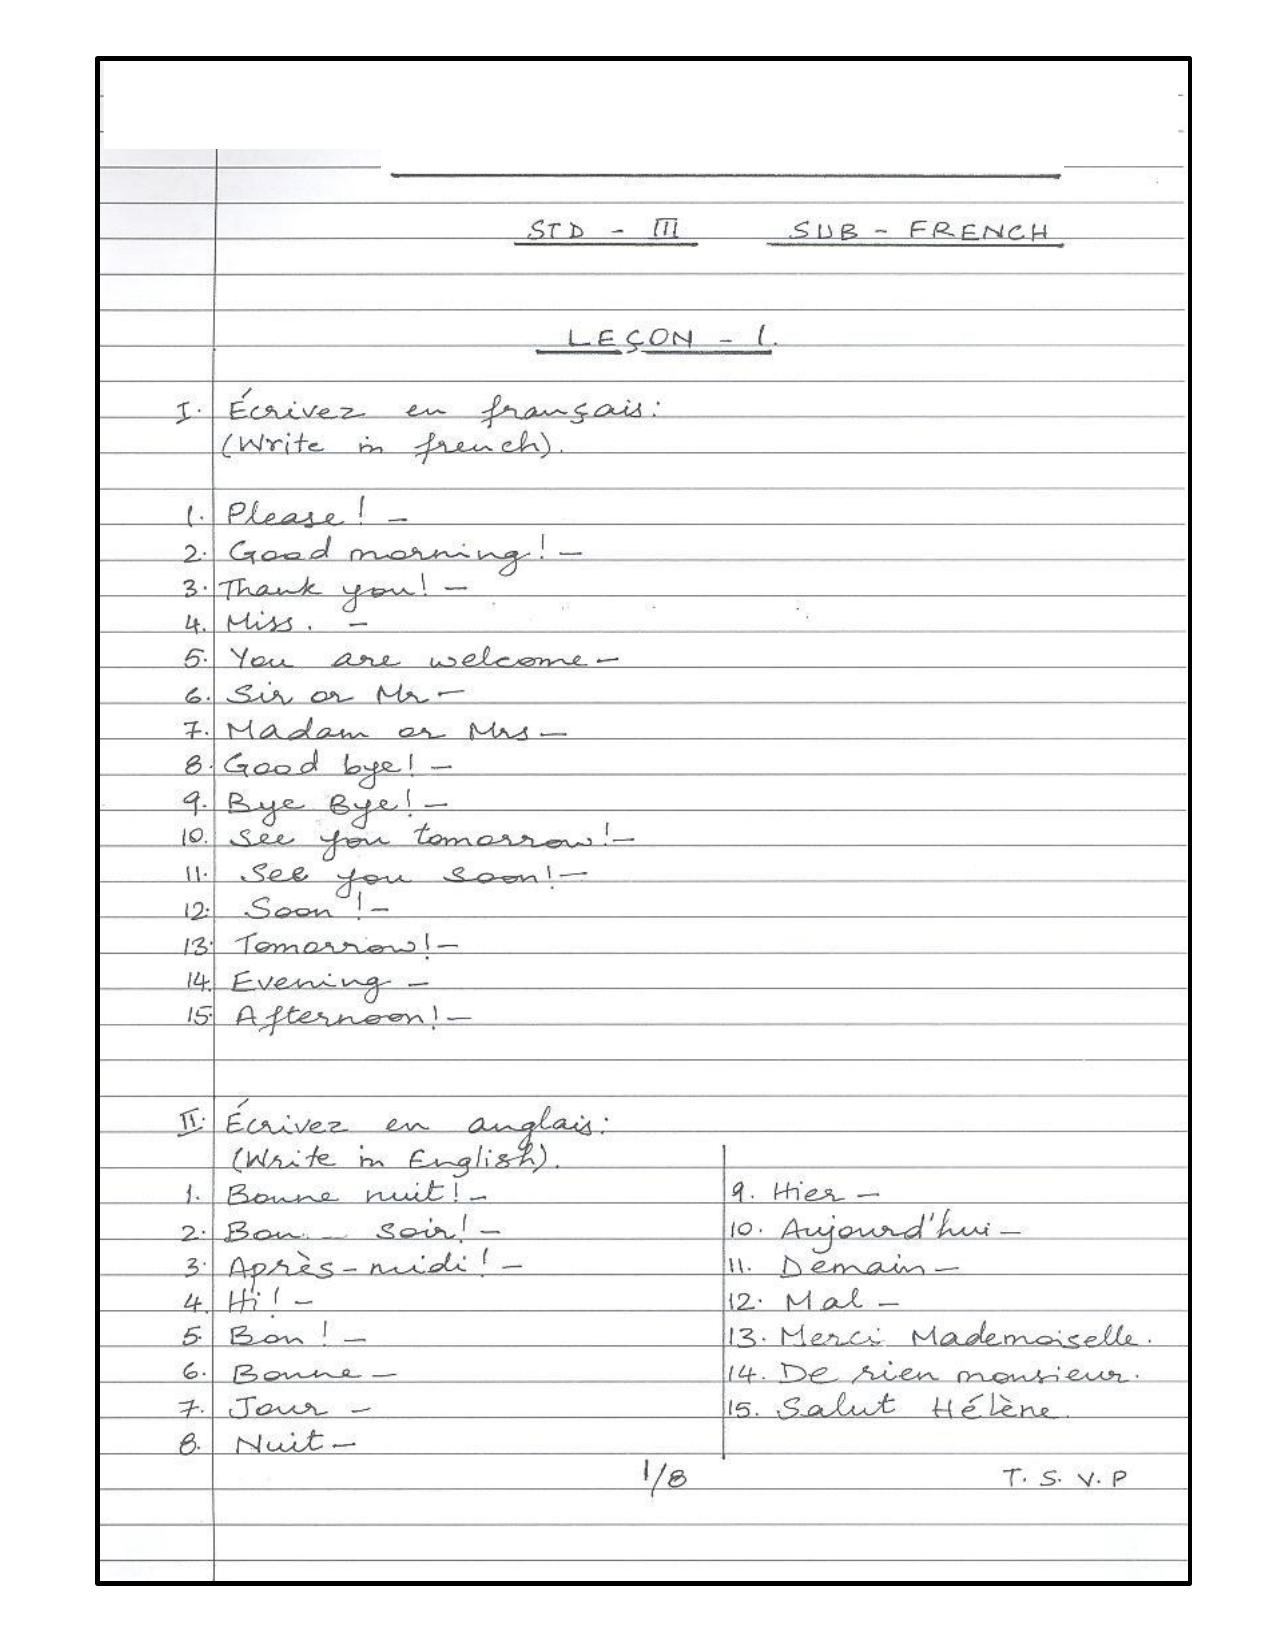 STD - III SUB - FRENCH
LEÇON - 1.
I. Écrivez en français:
(Write in french).
1. Please! -
2. Good morning! -
3. Thank you! -
4. Miss. -
5. You are welcome -
6. Sir or Mr -
7. Madam or Mrs -
8. Good bye! -
9. Bye Bye! -
10. See you tomorrow! -
11. See you soon! -
12. Soon! -
13. Tomorrow! -
14. Evening -
15. Afternoon! -
II. Écrivez en anglais:
(Write in English).
1. Bonne nuit! -
2. Bon - soir! -
3. Après-midi! -
4. Hi! -
5. Bon! -
6. Bonne -
7. Jour -
8. Nuit -
9. Hier -
10. Aujourd'hui -
11. Demain -
12. Mal -
13. Merci Mademoiselle.
14. De rien monsieur.
15. Salut Hélène.
1/8
T. S. V. P